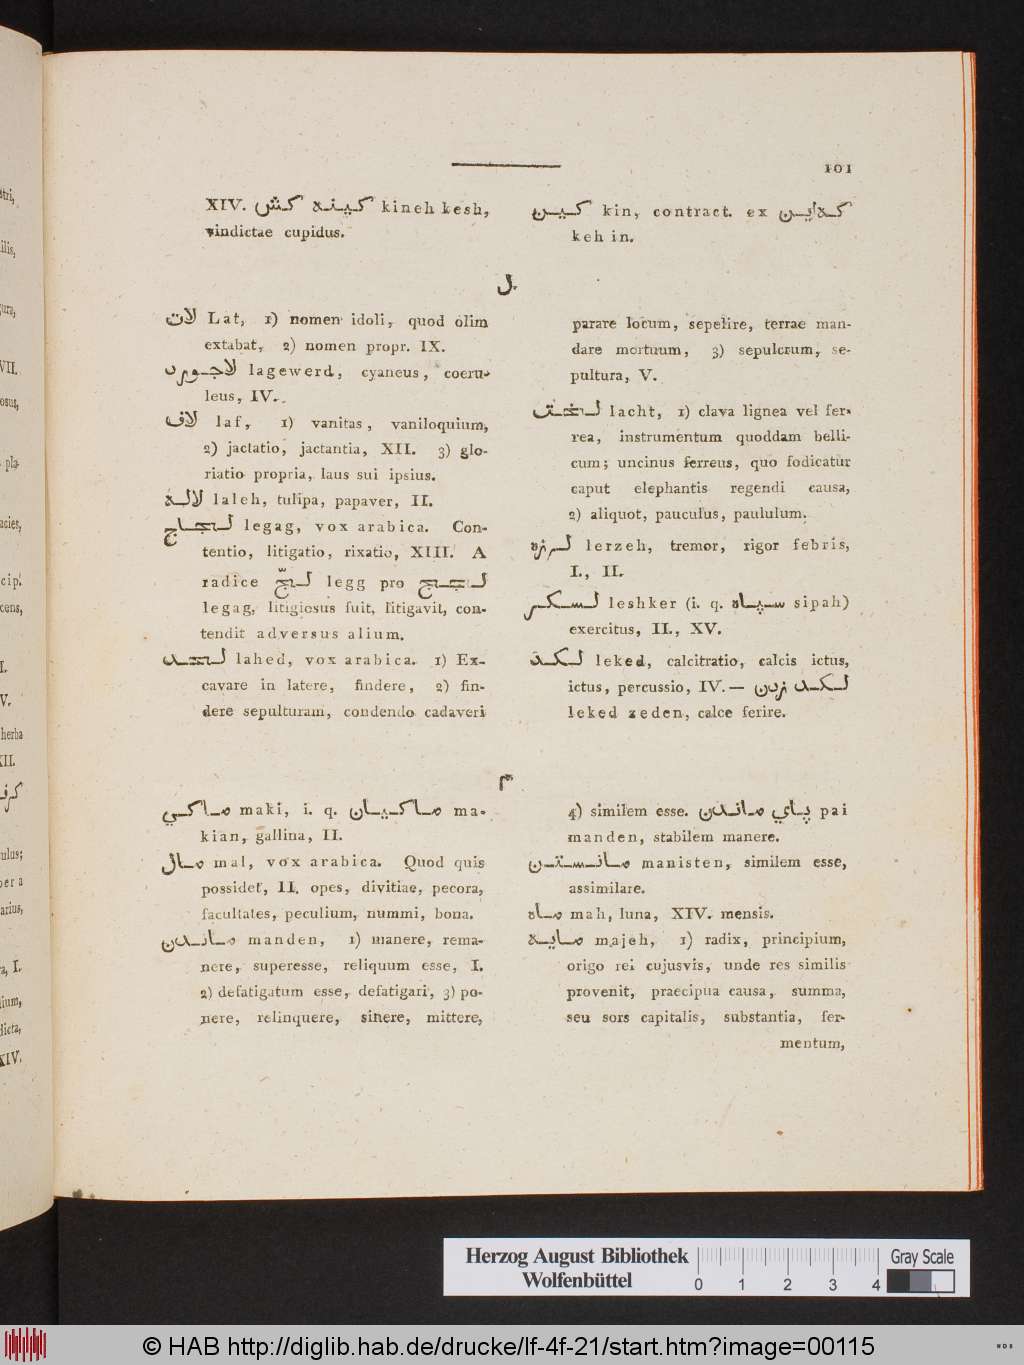 101
XIV. كينه كش kineh kesh,
vindictae cupidus.
كين kin, contract. ex كه اين
keh in.
ل.
لات Lat, 1) nomen idoli, quod olim
extabat, 2) nomen propr. IX.
لاجورد lagewerd, cyaneus, coeru-
leus, IV.
لاف laf, 1) vanitas, vaniloquium,
2) jactatio, jactantia, XII. 3) glo-
riatio propria, laus sui ipsius.
لاله laleh, tulipa, papaver, II.
لجاج legag, vox arabica. Con-
tentio, litigatio, rixatio, XIII. A
radice لجّ legg pro لجج
legag, litigiosus fuit, litigavit, con-
tendit adversus alium.
لحد lahed, vox arabica. 1) Ex-
cavare in latere, findere, 2) fin-
dere sepulturam, condendo cadaveri
parare locum, sepelire, terrae man-
dare mortuum, 3) sepulcrum, se-
pultura, V.
لخت lacht, 1) clava lignea vel fer-
rea, instrumentum quoddam belli-
cum; uncinus ferreus, quo fodicatur
caput elephantis regendi causa,
2) aliquot, pauculus, paululum.
لرزه lerzeh, tremor, rigor febris,
I., II.
لسكر leshker (i. q. سپاه sipah)
exercitus, II., XV.
لكد leked, calcitratio, calcis ictus,
ictus, percussio, IV. — لكد زدن
leked zeden, calce ferire.
م
ماكي maki, i. q. ماكيان ma-
kian, gallina, II.
مال mal, vox arabica. Quod quis
possidet, II. opes, divitiae, pecora,
facultates, peculium, nummi, bona.
ماندن manden, 1) manere, rema-
nere, superesse, reliquum esse, I.
2) defatigatum esse, defatigari, 3) po-
nere, relinquere, sinere, mittere,
4) similem esse. پاي ماندن pai
manden, stabilem manere.
مانستن manisten, similem esse,
assimilare.
ماه mah, luna, XIV. mensis.
مايه majeh, 1) radix, principium,
origo rei cujusvis, unde res similis
provenit, praecipua causa, summa,
seu sors capitalis, substantia, fer-
mentum,
Herzog August Bibliothek
Wolfenbüttel
0 1 2 3 4
Gray Scale
© HAB http://diglib.hab.de/drucke/lf-4f-21/start.htm?image=00115